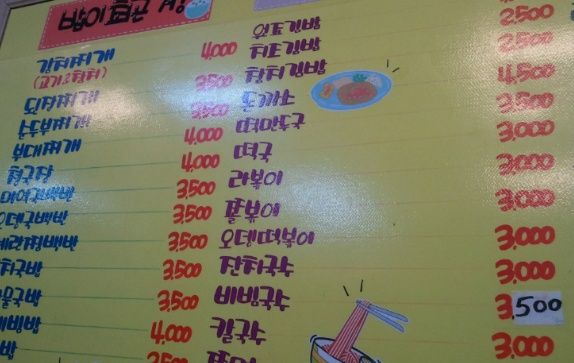 밥이
김치찌개 4,000
(고기&참치)
된장찌개 3,500
순두부찌개 3,500
부대찌개 4,000
청국장 4,000
미역국백반 3,500
오뎅국백반 3,500
계란찜백반 3,500
치국밥 3,500
물국밥 3,500
비빔밥 4,000
밥 3,500
원조김밥
치즈김밥 2,500
참치김밥 2,500
돈까스 4,500
떡만두국 3,500
떡국 3,000
라볶이 3,000
쫄볶이 3,000
오뎅떡볶이 3,000
잔치국수 3,000
비빔국수 3,500
칼국수 3,000